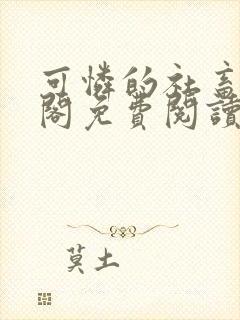 可憐的社畜
閣免費閱讀
莫土